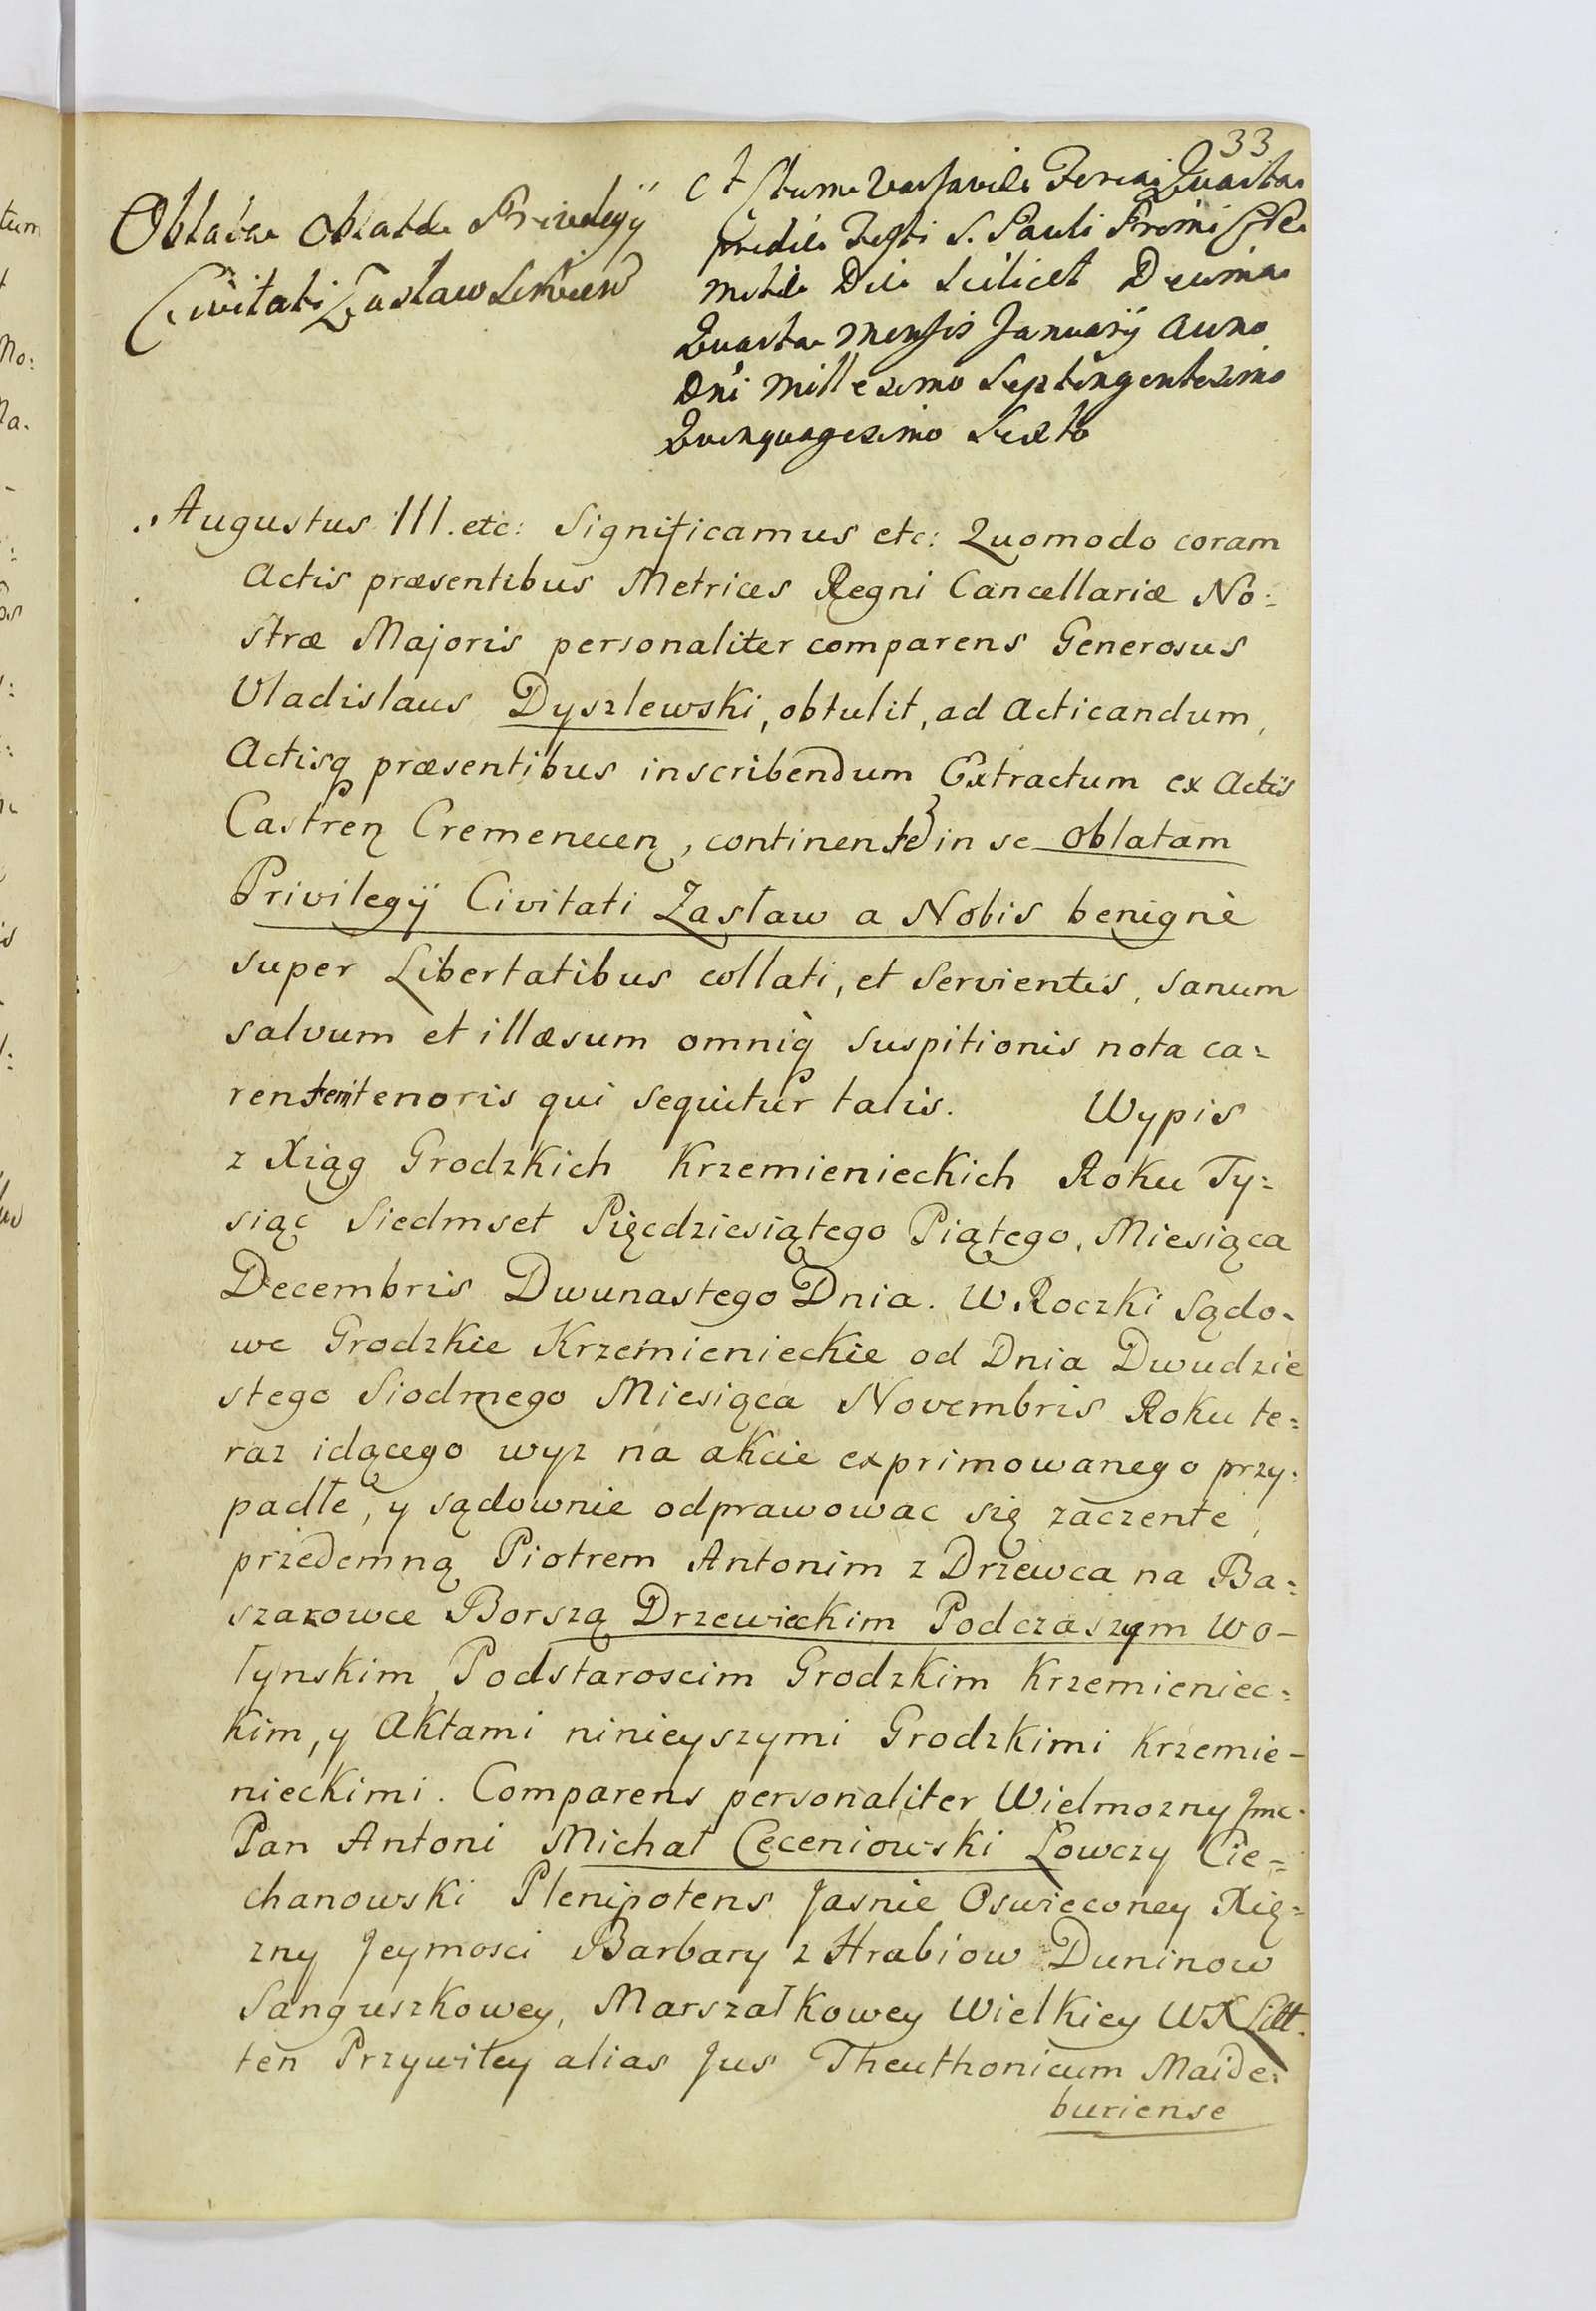 33
Oblata Oblatæ Privilegÿ
Civitati Zasław Servien
Actum Varsaviæ Feria Quarta
pridie Festi S. Pauli Primi Ere
mitæ Die Scilicet Decima
Quarta Mensis Januarÿ Anno
Dni Millesimo Septingentesimo
Quinquagesimo Sexto
Augustus III. etc: Significamus etc: Quomodo coram
Actis præsentibus Metrices Regni Cancellariæ No:
stræ Majoris personaliter comparens Generosus
Vladislaus Dyszlewski, obtulit, ad Acticandum,
Actisq præsentibus inscribendum Extractum ex Actis
Castren Cremenecen, continentē in se oblatam
Privilegÿ Civitati Zasław a Nobis benignè
super Libertatibus collati, et Servientis, sanum
salvum et illæsum omniq̀ suspitionis nota ca-
rentem tenoris qui sequitur talis. Wypis
z Xiąg Grodzkich Krzemienieckich Roku Ty:
siąc Siedmset Pięcdziesiątego Piątego, Miesiąca
Decembris Dwunastego Dnia. W Roczki Sądo-
we Grodzkie Krzemienieckie od Dnia Dwudzie
stego Siodmego Miesiąca Novembris Roku te:
raz idącego wyz na akcie exprimowanego przy:
padłe, y sądownie odprawowac się zaczente,
przedemną Piotrem Antonim z Drzewca na Ba:
szarowce Borszą Drzewieckim Podczaszym Wo-
łynskim, Podstaroscim Grodzkim Krzemieniec:
kim, y Aktami ninieyszymi Grodzkimi Krzemie-
nieckimi. Comparens personaliter Wielmozny Jmc.
Pan Antoni Michał Ceceniowski Łowczy Cie-
chanowski Plenipotens Jasnie Oswieconey Xię:
zny Jeymosci Barbary z Hrabiow Duninow
Sanguszkowey, Marszałkowey Wielkiey WX Litt.
ten Przywiley alias Jus Theuthonicum Maide:
buriense